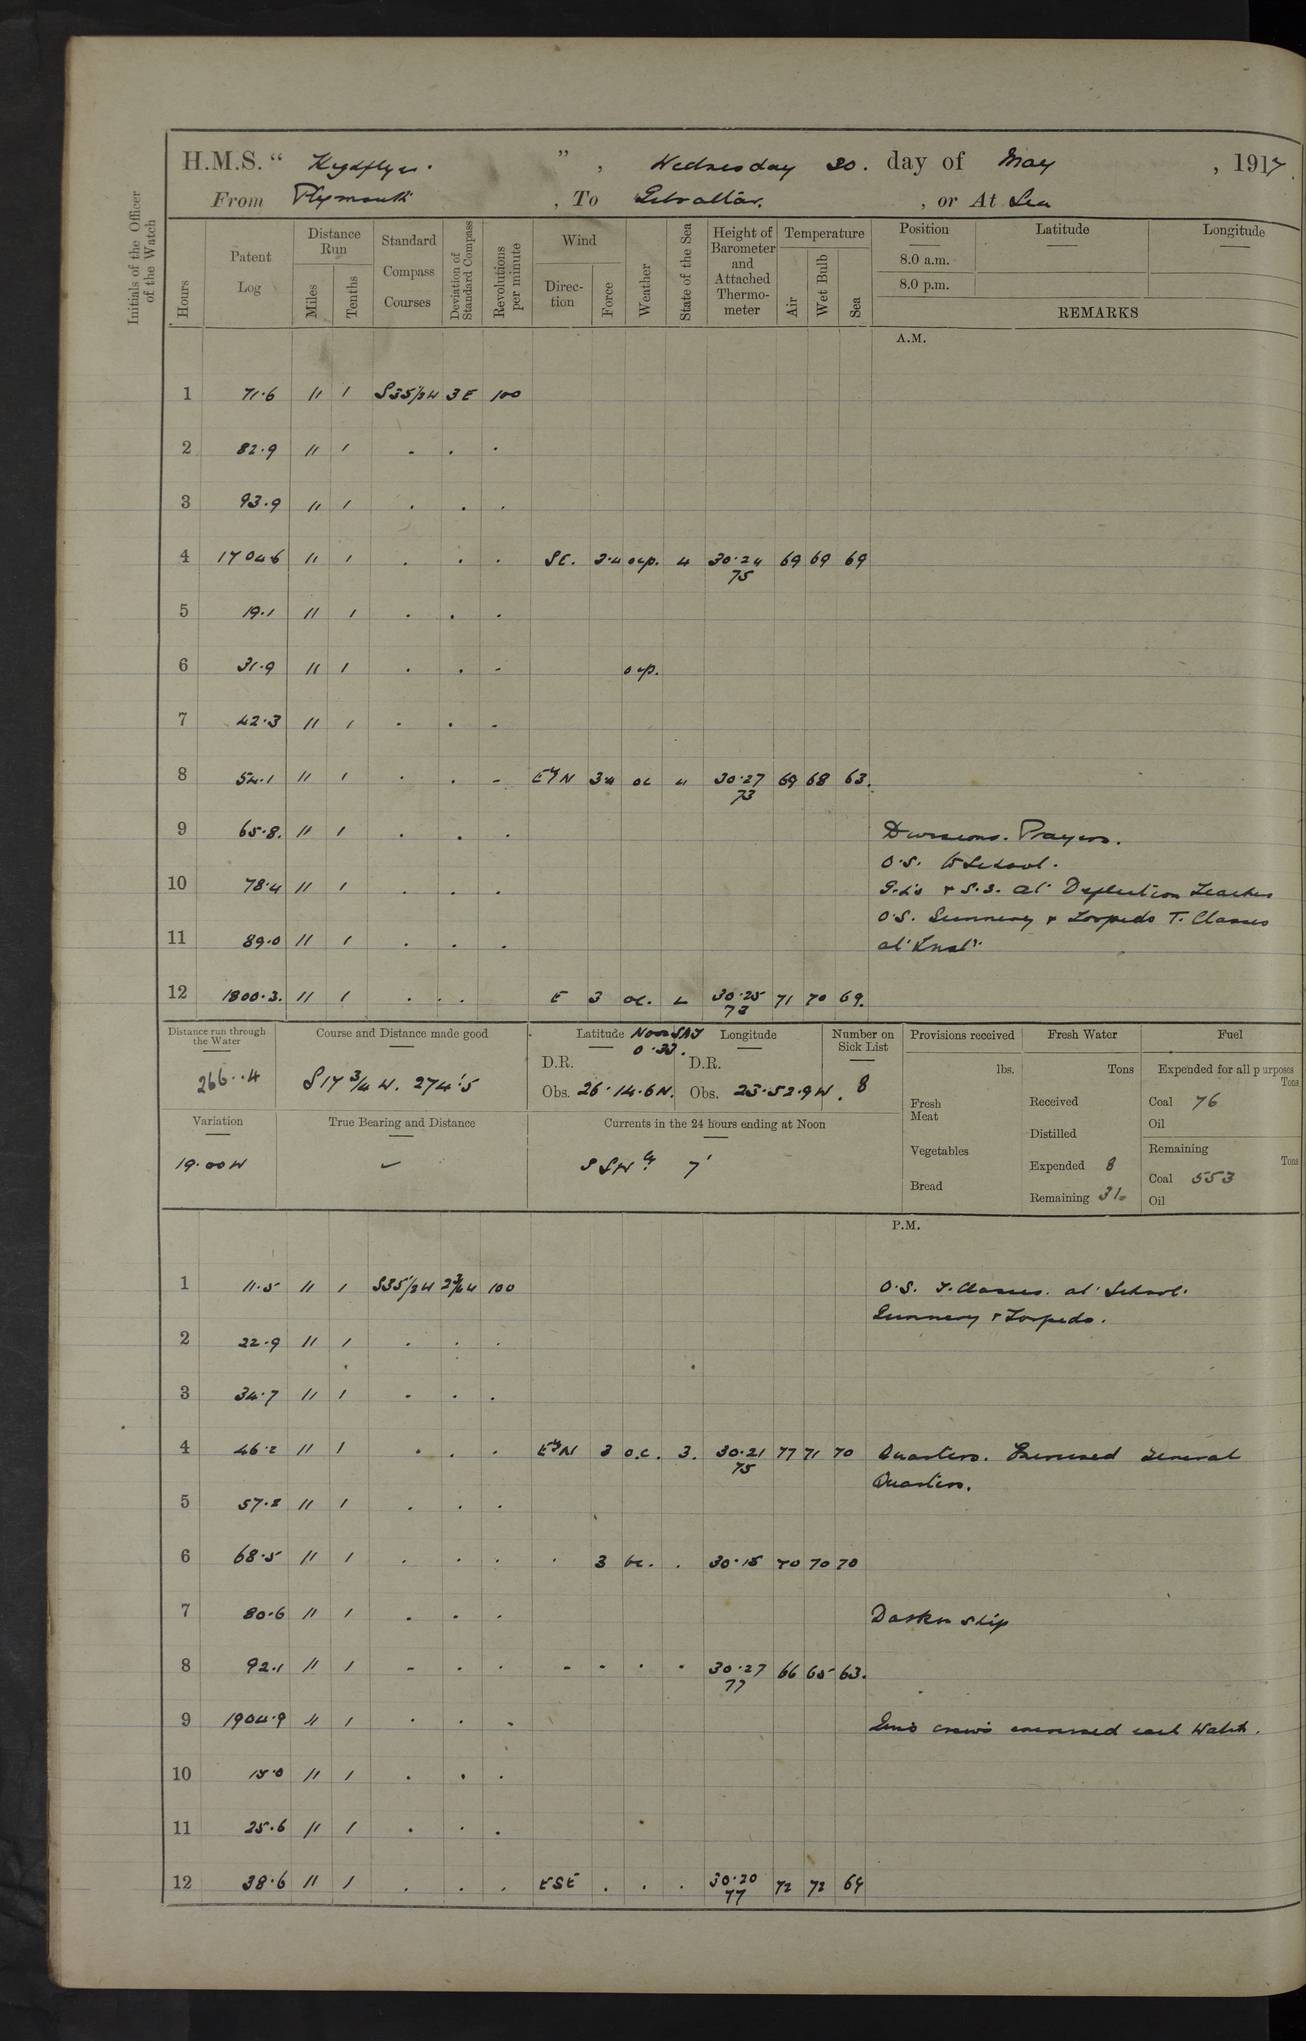 H.M.S. " Highflyer. ", Wednesday 30. day of May, 1917.
From Plymouth, To Gibraltar, or At Sea
Initials of the Officer of the Watch
Hours
Patent Log
Distance Run
Miles
Tenths
Standard Compass Courses
Deviation of Standard Compass
Revolutions per minute
Wind
Direction
Force
Weather
State of the Sea
Height of Barometer and Attached Thermometer
Temperature
Air
Wet Bulb
Sea
Position
8.0 a.m.
8.0 p.m.
Latitude
Longitude
REMARKS
A.M.
1 71.6 " 1 S35½W 3E 100
2 82.9 " 1 . . .
3 93.9 " 1 . . .
4 1704.6 " 1 . . . SE. 3.4 ocp. 4 30.24 69 69 69
75
5 19.1 " 1 . . .
6 31.9 " 1 . . - ocp.
7 42.3 " 1 . . -
8 54.1 " 1 . . - EyN 3.4 oc " 30.27 69 68 63.
73
9 65.8. " 1 . . . Divisions. Prayers.
O.S. to School.
10 78.4 " 1 . . . G.L's & S.S. at Deflection Teacher
O.S. Gunnery & Torpedo T. Classes
11 89.0 " 1 . . . at Inst".
12 1800.3. " 1 . . . E 3 oc. 30.25 71 70 69.
73
Distance run through the Water
266..4
Course and Distance made good
S 17 ¾ W. 274'.5
Latitude Noon SAT Longitude
0.33.
D.R. D.R.
Obs. 26.14.6N. Obs. 23.52.9W.
Number on Sick List
8
Provisions received
lbs.
Fresh Meat
Vegetables
Bread
Fresh Water
Tons
Received
Distilled
Expended 8
Remaining
Fuel
Expended for all purposes
Tons
Coal 76
Oil
Remaining
Tons
Coal 553
Oil
Variation
19.00W
True Bearing and Distance
Currents in the 24 hours ending at Noon
SSWly 7'
P.M.
1 11.5 " 1 S35½W 100 O.S. T. Classes. at School.
Gunnery & Torpedo.
2 22.9 " 1 . . .
3 34.7 " 1 . . .
4 46.2 " 1 . . . EyN 3 o.c. 3. 30.21 77 71 70 Quarters. Exercised General
75 Quarters.
5 57.2 " 1 . . .
6 68.5 " 1 . . . . 3 bc. . 30.15 70 70 70
7 80.6 " 1 . . . Darken ship
8 92.1 " 1 - . . - - . . 30.27 66 65 63.
77
9 1904.9 " 1 . . . Guns crews exercised each Watch.
10 15.0 " 1 . . .
11 25.6 " 1 . . .
12 38.6 " 1 . . . ESE . . . 30.20 72 72 69
77